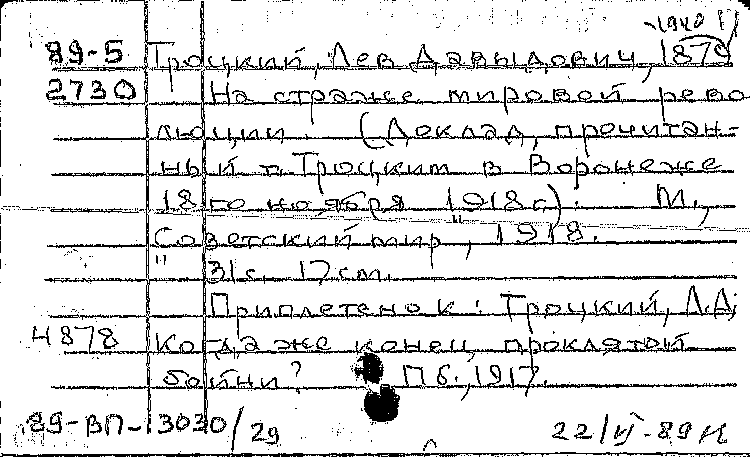 -1940
89-5 Троцкий, Лев Давыдович, 1879
2730 На страже мировой рево
люции. (Доклад, прочитан-
ный т. Троцким в Воронеже
18го ноября 1918 г). М.,
"Советский мир", 1918.
31с. 17см.
Приплетено к: Троцкий, Л.Д.
4878 Когда же конец проклятой
бойни? Пб., 1917.
89-ВП-13030/29 22/VI-89